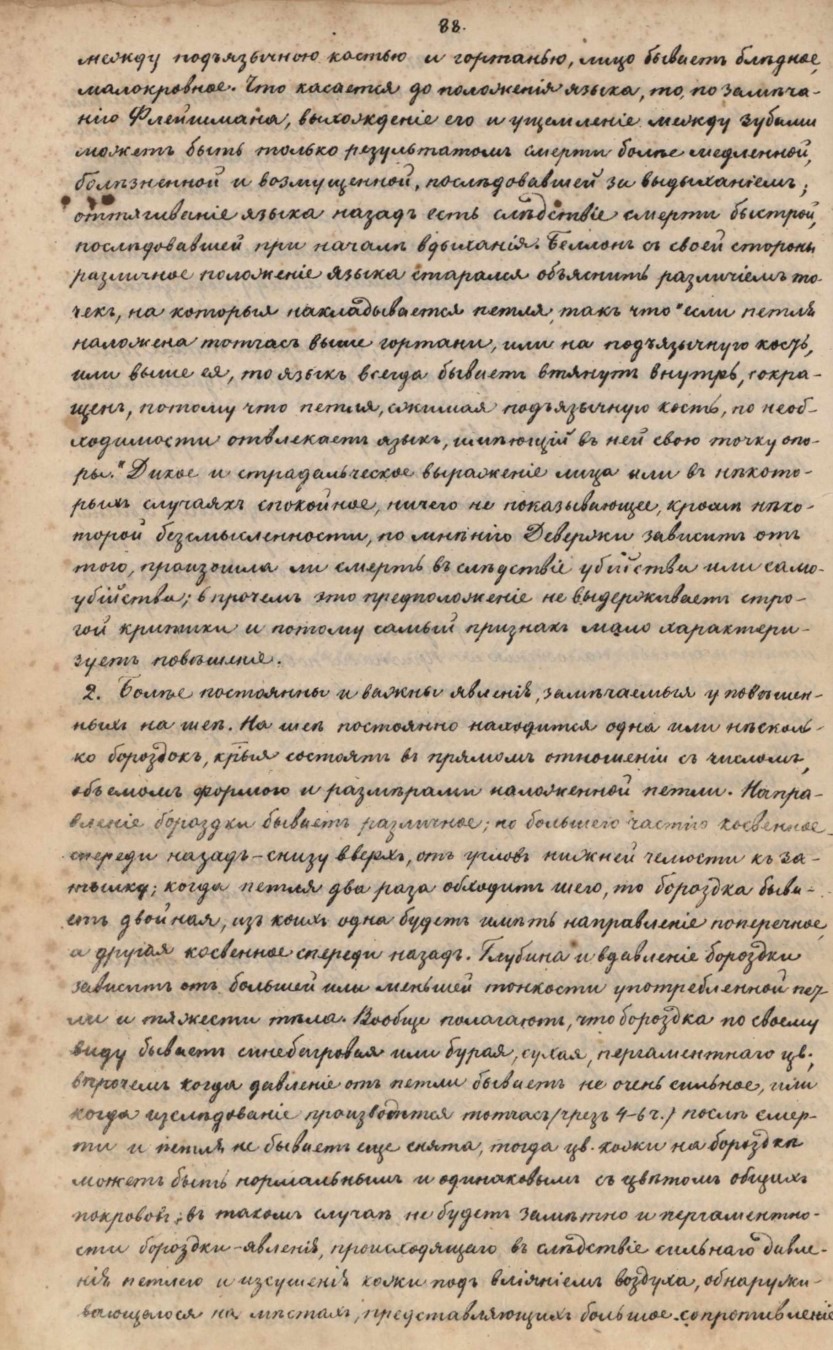 88.
между подъязычною костью и гортанью, лицо бываетъ блѣдное,
малокровное. Что касается до положенія языка, то, по замѣча-
нію Флейшмана, выхожденіе его и ущемленіе между зубами
можетъ быть только результатомъ смерти болѣе медленной,
болѣзненной и возмущенной, послѣдовавшей за выдыханіемъ;
оттягиваніе языка назадъ есть слѣдствіе смерти быстрой,
послѣдовавшей при началѣ вдыханія. Беллонъ съ своей стороны
различное положеніе языка старался объяснить различіемъ то-
чекъ, на которыя накладывается петля, такъ что "если петля
наложена тотчасъ выше гортани, или на подъязычную кость,
или выше ея, то языкъ всегда бываетъ втянутъ внутрь, сокра-
щенъ, потому что петля, сжимая подъязычную кость, по необ-
ходимости отвлекаетъ языкъ, имѣющій въ ней свою точку опо-
ры." Дикое и страдальческое выраженіе лица или въ нѣкото-
рыхъ случаяхъ спокойное, ничего не показывающее, кромѣ нѣко-
торой безсмысленности, по мнѣнію Девержи зависитъ отъ
того, произошла ли смерть въ слѣдствіе убійства или само-
убійства; впрочемъ это предположеніе не выдерживаетъ стро-
гой критики и потому самый признакъ мало характери-
зуетъ повѣшеніе.
2. Болѣе постоянны и важны явленія, замѣчаемыя у повѣшен-
ныхъ на шеѣ. На шеѣ постоянно находится одна или нѣсколь-
ко бороздокъ, крыя состоятъ въ прямомъ отношеніи съ числомъ,
объемомъ формою и размѣрами наложенной петли. Напра-
вленіе бороздки бываетъ различное; но большею частію косвенное
спереди назадъ - снизу вверхъ, отъ угловъ нижней челюсти къ за-
тылку; когда петля два раза обходитъ шею, то бороздка быва-
етъ двойная, изъ коихъ одна будетъ имѣть направленіе поперечное,
а другая косвенное спереди назадъ. Глубина и вдавленіе бороздки
зависитъ отъ большей или меньшей тонкости употребленной пет-
ли и тяжести тѣла. Вообще полагаютъ, что бороздка по своему
виду бываетъ синебагровая или бурая, сухая, пергаментнаго цв.;
впрочемъ когда давленіе отъ петли бываетъ не очень сильное, или
когда изслѣдованіе производится тотчасъ /чрезъ 4-6 ч./ послѣ смер-
ти и петля не бываетъ еще снята, тогда цв. кожи на бороздкѣ
можетъ быть нормальнымъ и одинаковымъ съ цвѣтомъ общихъ
покрововъ; въ такомъ случаѣ не будетъ замѣтно и пергаментно-
сти бороздки - явленія, происходящаго въ слѣдствіе сильнаго давле-
нія петлею и изсушенія кожи подъ вліяніемъ воздуха, обнаружи-
вающагося на мѣстахъ, представляющихъ большое сопротивленіе